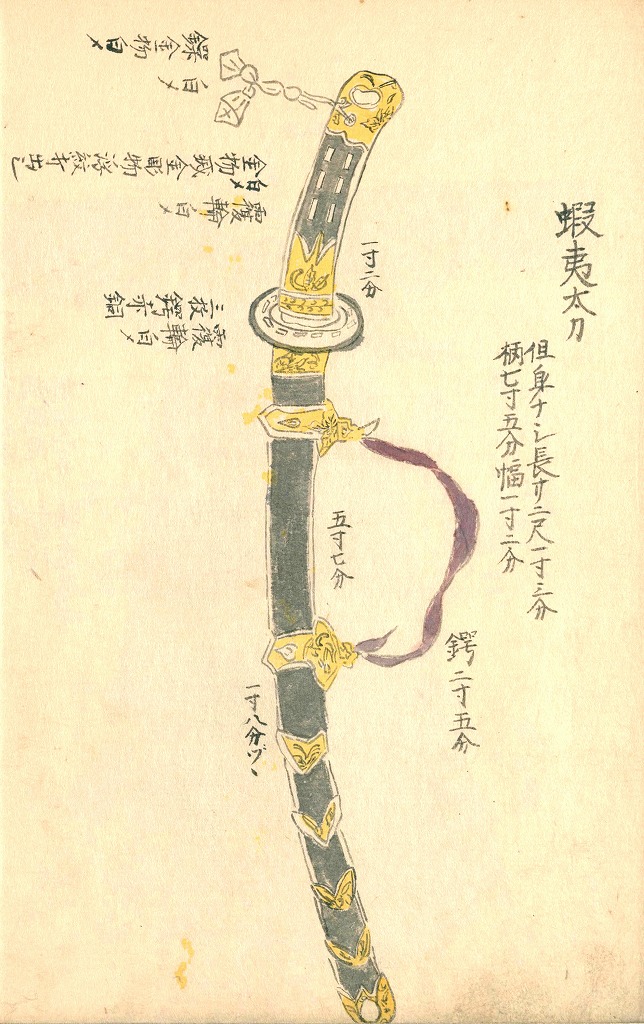 蝦夷太刀
但身ナシ長サ二尺一寸三分
柄七寸五分幅一寸二分
鍔二寸五分
一寸二分
五寸七分
一寸八分ヅヽ
金物
白メ
覆輪白メ
三枚鍔赤銅
覆輪白メ
白メ
金物白メ